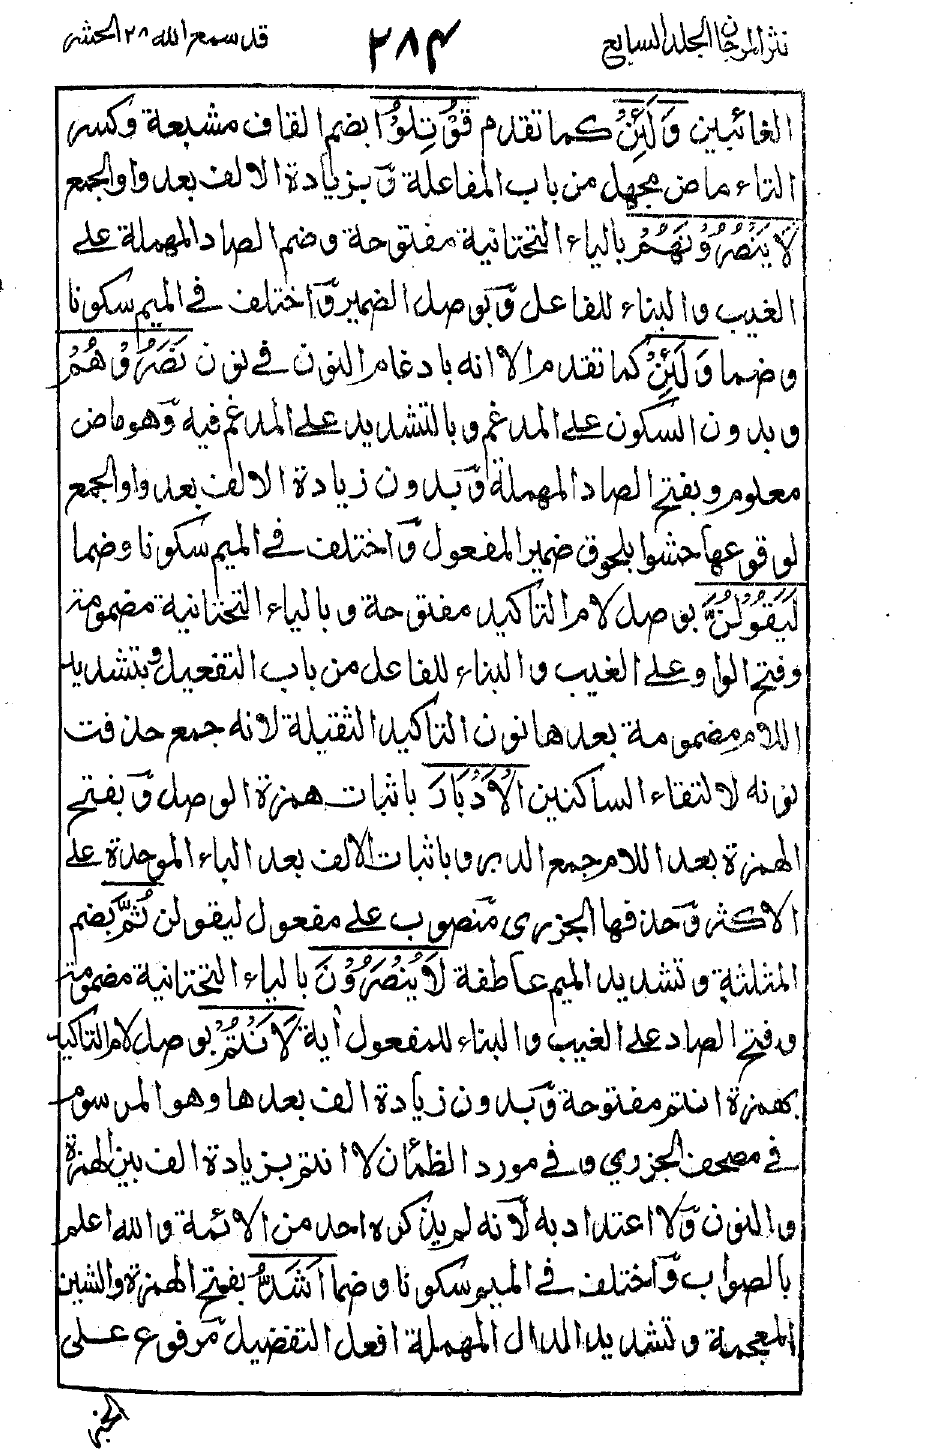 نثر المرجان الجلد السابع
٢٨٤
قد سمع الله ٢٨ الحشر
الغائبين وَلَئِنْ كما تقدم قُوْتِلُوْا بضم القاف مشبعة وكسر
التاء ماض مجهل من باب المفاعلة وَبزيادة الالف بعد واو الجمع
لَا يَنْصُرُوْنَهُمْ بالياء التحتانية مفتوحة وضم الصاد المهملة على
الغيب والبناء للفاعل وَبوصل الضمير وَاختلف في الميم سكونا
وضما وَلَئِنْ كما تقدم الا انه بادغام النون في نون نَصَرُوْهُمْ
وبدون السكون على المدغم وبالتشديد على المدغم فيه وَهو ماض
معلوم وبفتح الصاد المهملة وَبدون زيادة الالف بعد واو الجمع
لوقوعها حشوا بلحوق ضمير المفعول وَاختلف في الميم سكونا وضما
لَيَقُوْلُنَّ بوصل لام التاكيد مفتوحة وبالياء التحتانية مضمومة
وفتح الواو على الغيب والبناء للفاعل من باب التفعيل وبتشديد
اللام مضمومة بعدها نون التاكيد الثقيلة لانه جمع حذفت
نونه لالتقاء الساكنين الْاَدْبَارَ باثبات همزة الوصل وَبفتح
الهمزة بعد اللام جمع الدبر وباثبات الالف بعد الباء الموحدة على
الاكثر وَحذفها الجزرى مَنصوب على مفعول ليقولن ثُمَّ بضم
المثلثة وتشديد الميم عاطفة لَا يُنْصَرُوْنَ بالياء التحتانية مضمومة
وفتح الصاد على الغيب والبناء للمفعول اٰية لَاَنْتُمْ بوصل لام التاكيد
بهمزة انتم مفتوحة وَبدون زيادة الف بعدها وهو المرسوم
في مصحف الجزري وفي مورد الظمأن لا انتم بزيادة الف بين الهمزة
والنون وَلا اعتداد به لَانه لم يذكره احد من الائمة والله اعلم
بالصواب وَاختلف في الميم سكونا وضما اَشَدُّ بفتح الهمزة والشين
المعجمة وتشديد الدال المهملة افعل التفضيل مَرفوع على
الخبر